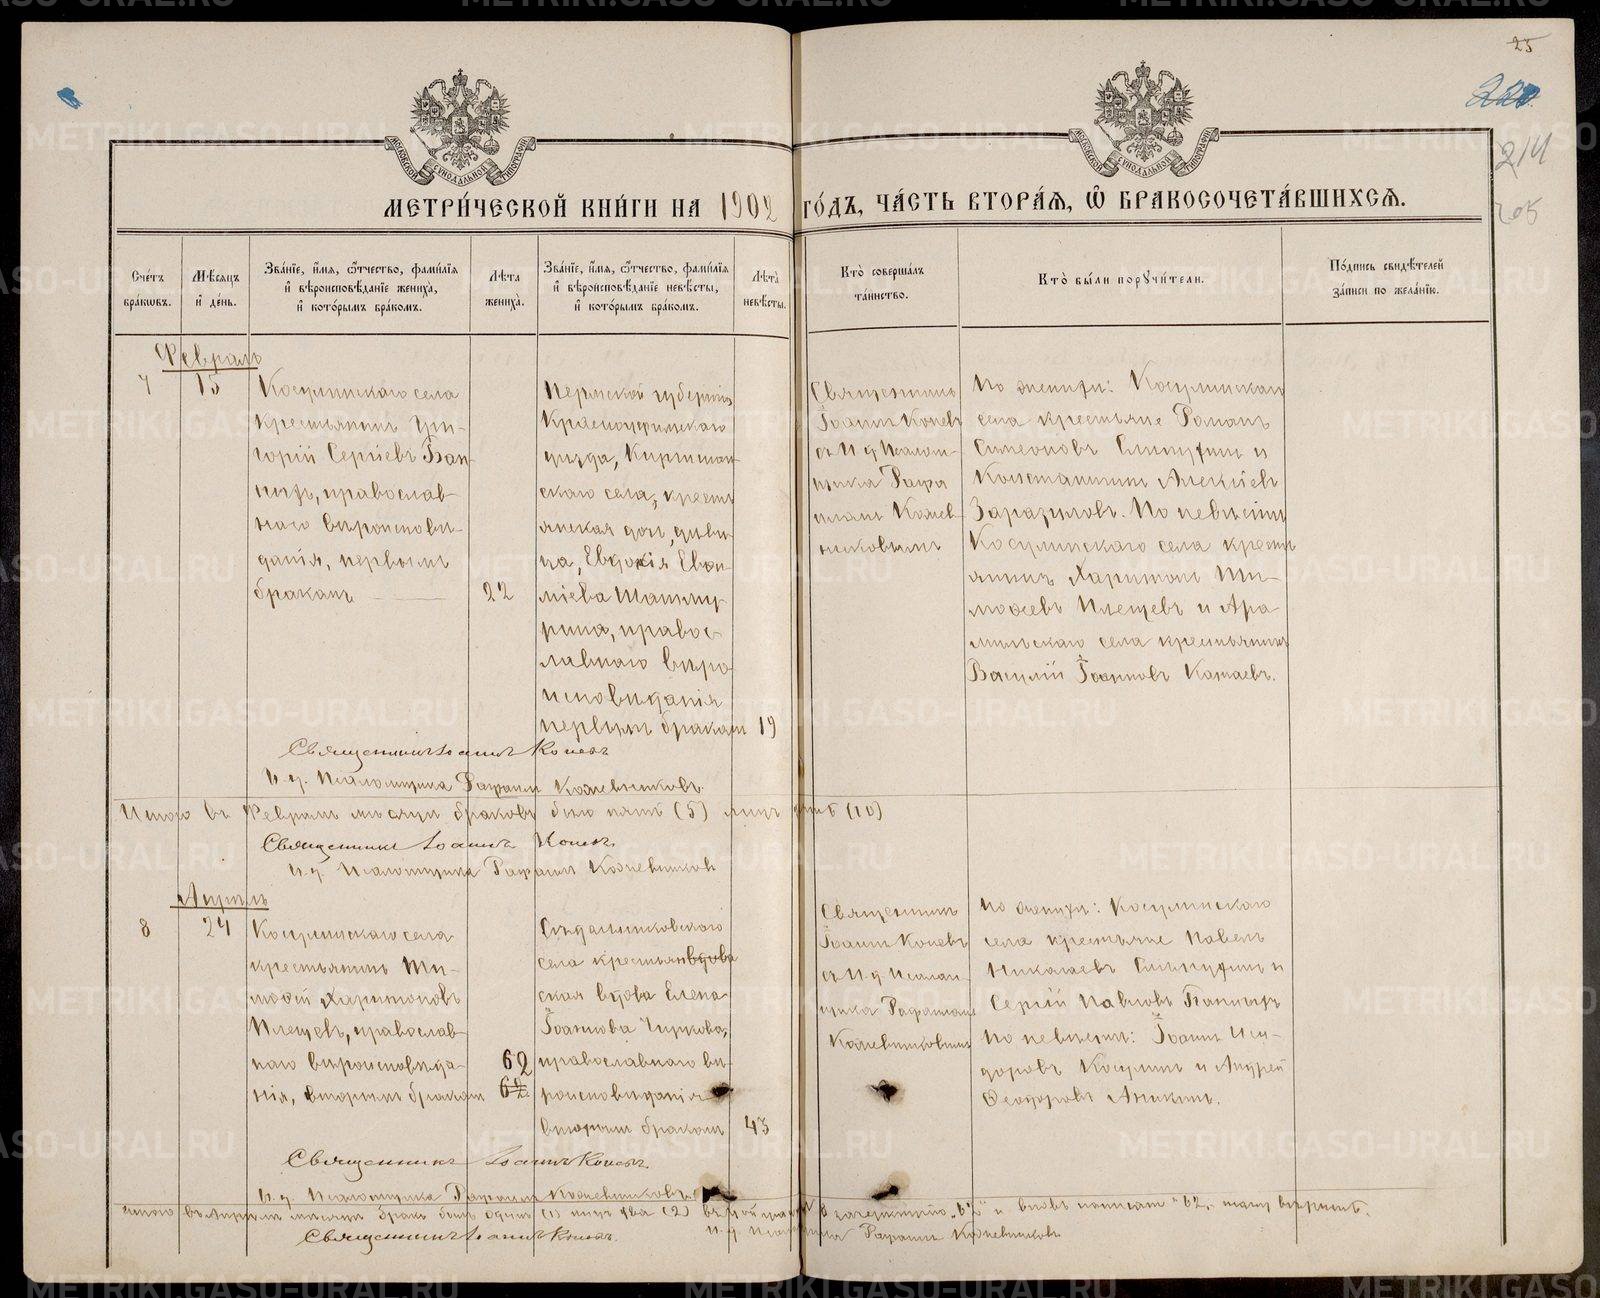 25
214
205
МЕТРИ́ЧЕСКОЙ КНИ́ГИ НА 1902 ГО́ДЪ, ЧА́СТЬ ВТОРА́Я, Ѿ БРАКОСОЧЕТА́ВШИХСЯ.
Сче́тъ бра́ковъ.
Мѣ́сяцъ и҆ де́нь.
Зва́нїе, и҆́мя, ѻ҆́тчество, фами́лїя и҆ вѣроисповѣ́данїе жениха̀, и҆ кото́рымъ бра́комъ.
Лѣ́та жениха̀.
Зва́нїе, и҆́мя, ѻ҆́тчество, фами́лїя и҆ вѣроисповѣ́данїе невѣ́сты, и҆ кото́рымъ бра́комъ.
Лѣ́та невѣ́сты.
Кто̀ соверша́лъ та́инство.
Кто̀ бы́ли порꙋчи́тели.
По́дпись свидѣ́телей за́писи по жела́нїю.
Февраль
7
15
Косулинскаго села
крестьянинъ Гри-
горій Сергіевъ Бан-
ныхъ, православ-
наго вѣроисповѣ-
данія, первымъ
бракомъ
22
Пермской губерніи
Красноуфимскаго
уѣзда, Киргишан-
скаго села, кресть
янская дочь, дѣви
ца, Евдокія Евѳи-
міева
православнаго вѣро
исповѣданія
первымъ бракомъ
19
Священникъ
Іоаннъ Коневъ
съ И д Псалом-
щика Рафа
иломъ Кожев
никовымъ
По женихѣ: Косулинскаго
села крестьяне Романъ
Симеоновъ Спицынъ и
Константинъ Алексіевъ
По невѣстѣ
Косулинскаго села кресть
янинъ Харитонъ Ти-
моѳеевъ Плещевъ и Ара-
мильскаго села крестьянинъ
Василій Іоанновъ
Священникъ Іоаннъ Коневъ
И. д. Псаломщика Рафаилъ Кожевниковъ
Итого въ Февралѣ мѣсяцѣ браковъ было пять (5) лицъ (10)
Священникъ Іоаннъ Коневъ
И. д. Псаломщика Рафаилъ Кожевниковъ
Апрѣль
8
24
Косулинскаго села
крестьянинъ Ти-
моѳей Харитоновъ
Плещевъ, православ-
наго вѣроисповѣда-
нія, вторымъ бракомъ
62
62
села крестьянвдова
ская вдова Елена
Іоаннова Чиркова,
православнаго вѣ-
роисповѣданія
вторымъ бракомъ
43
Священникъ
Іоаннъ Коневъ
съ И. д. Псалом-
щика Рафаиломъ
Кожевниковымъ
По женихѣ: Косулинскаго
села крестьяне Павелъ
Николаевъ Спицынъ и
Сергій Павловъ Банныхъ
по невѣстѣ: Іоаннъ Иси-
доровъ Косулинъ и Андрей
Ѳеодоровъ Аникинъ.
Священникъ Іоаннъ Коневъ.
И. д. Псаломщика Рафаилъ Кожевниковъ
Итого въ Апрѣлѣ мѣсяцѣ бракъ былъ одинъ (1) лицъ два (2) и вновь написано "62"
Священникъ Іоаннъ Коневъ.
И. д. Псаломщика Рафаилъ Кожевниковъ
METRIKI.GASO-URAL.RU